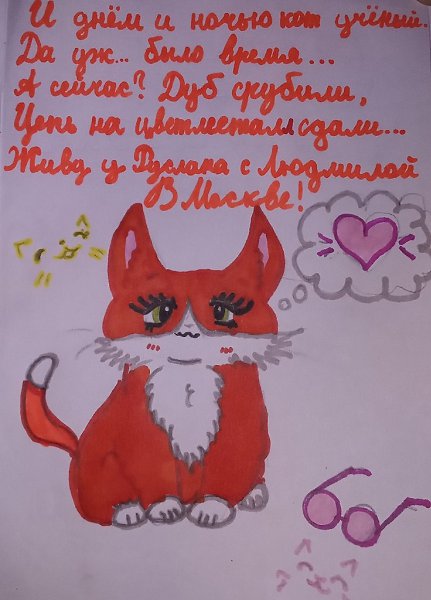 И днём и ночью кот учёный.
Да уж... было время...
А сейчас? Дуб срубили,
Цепь на цветметалл сдали...
Живу у Руслана с Людмилой
В Москве!